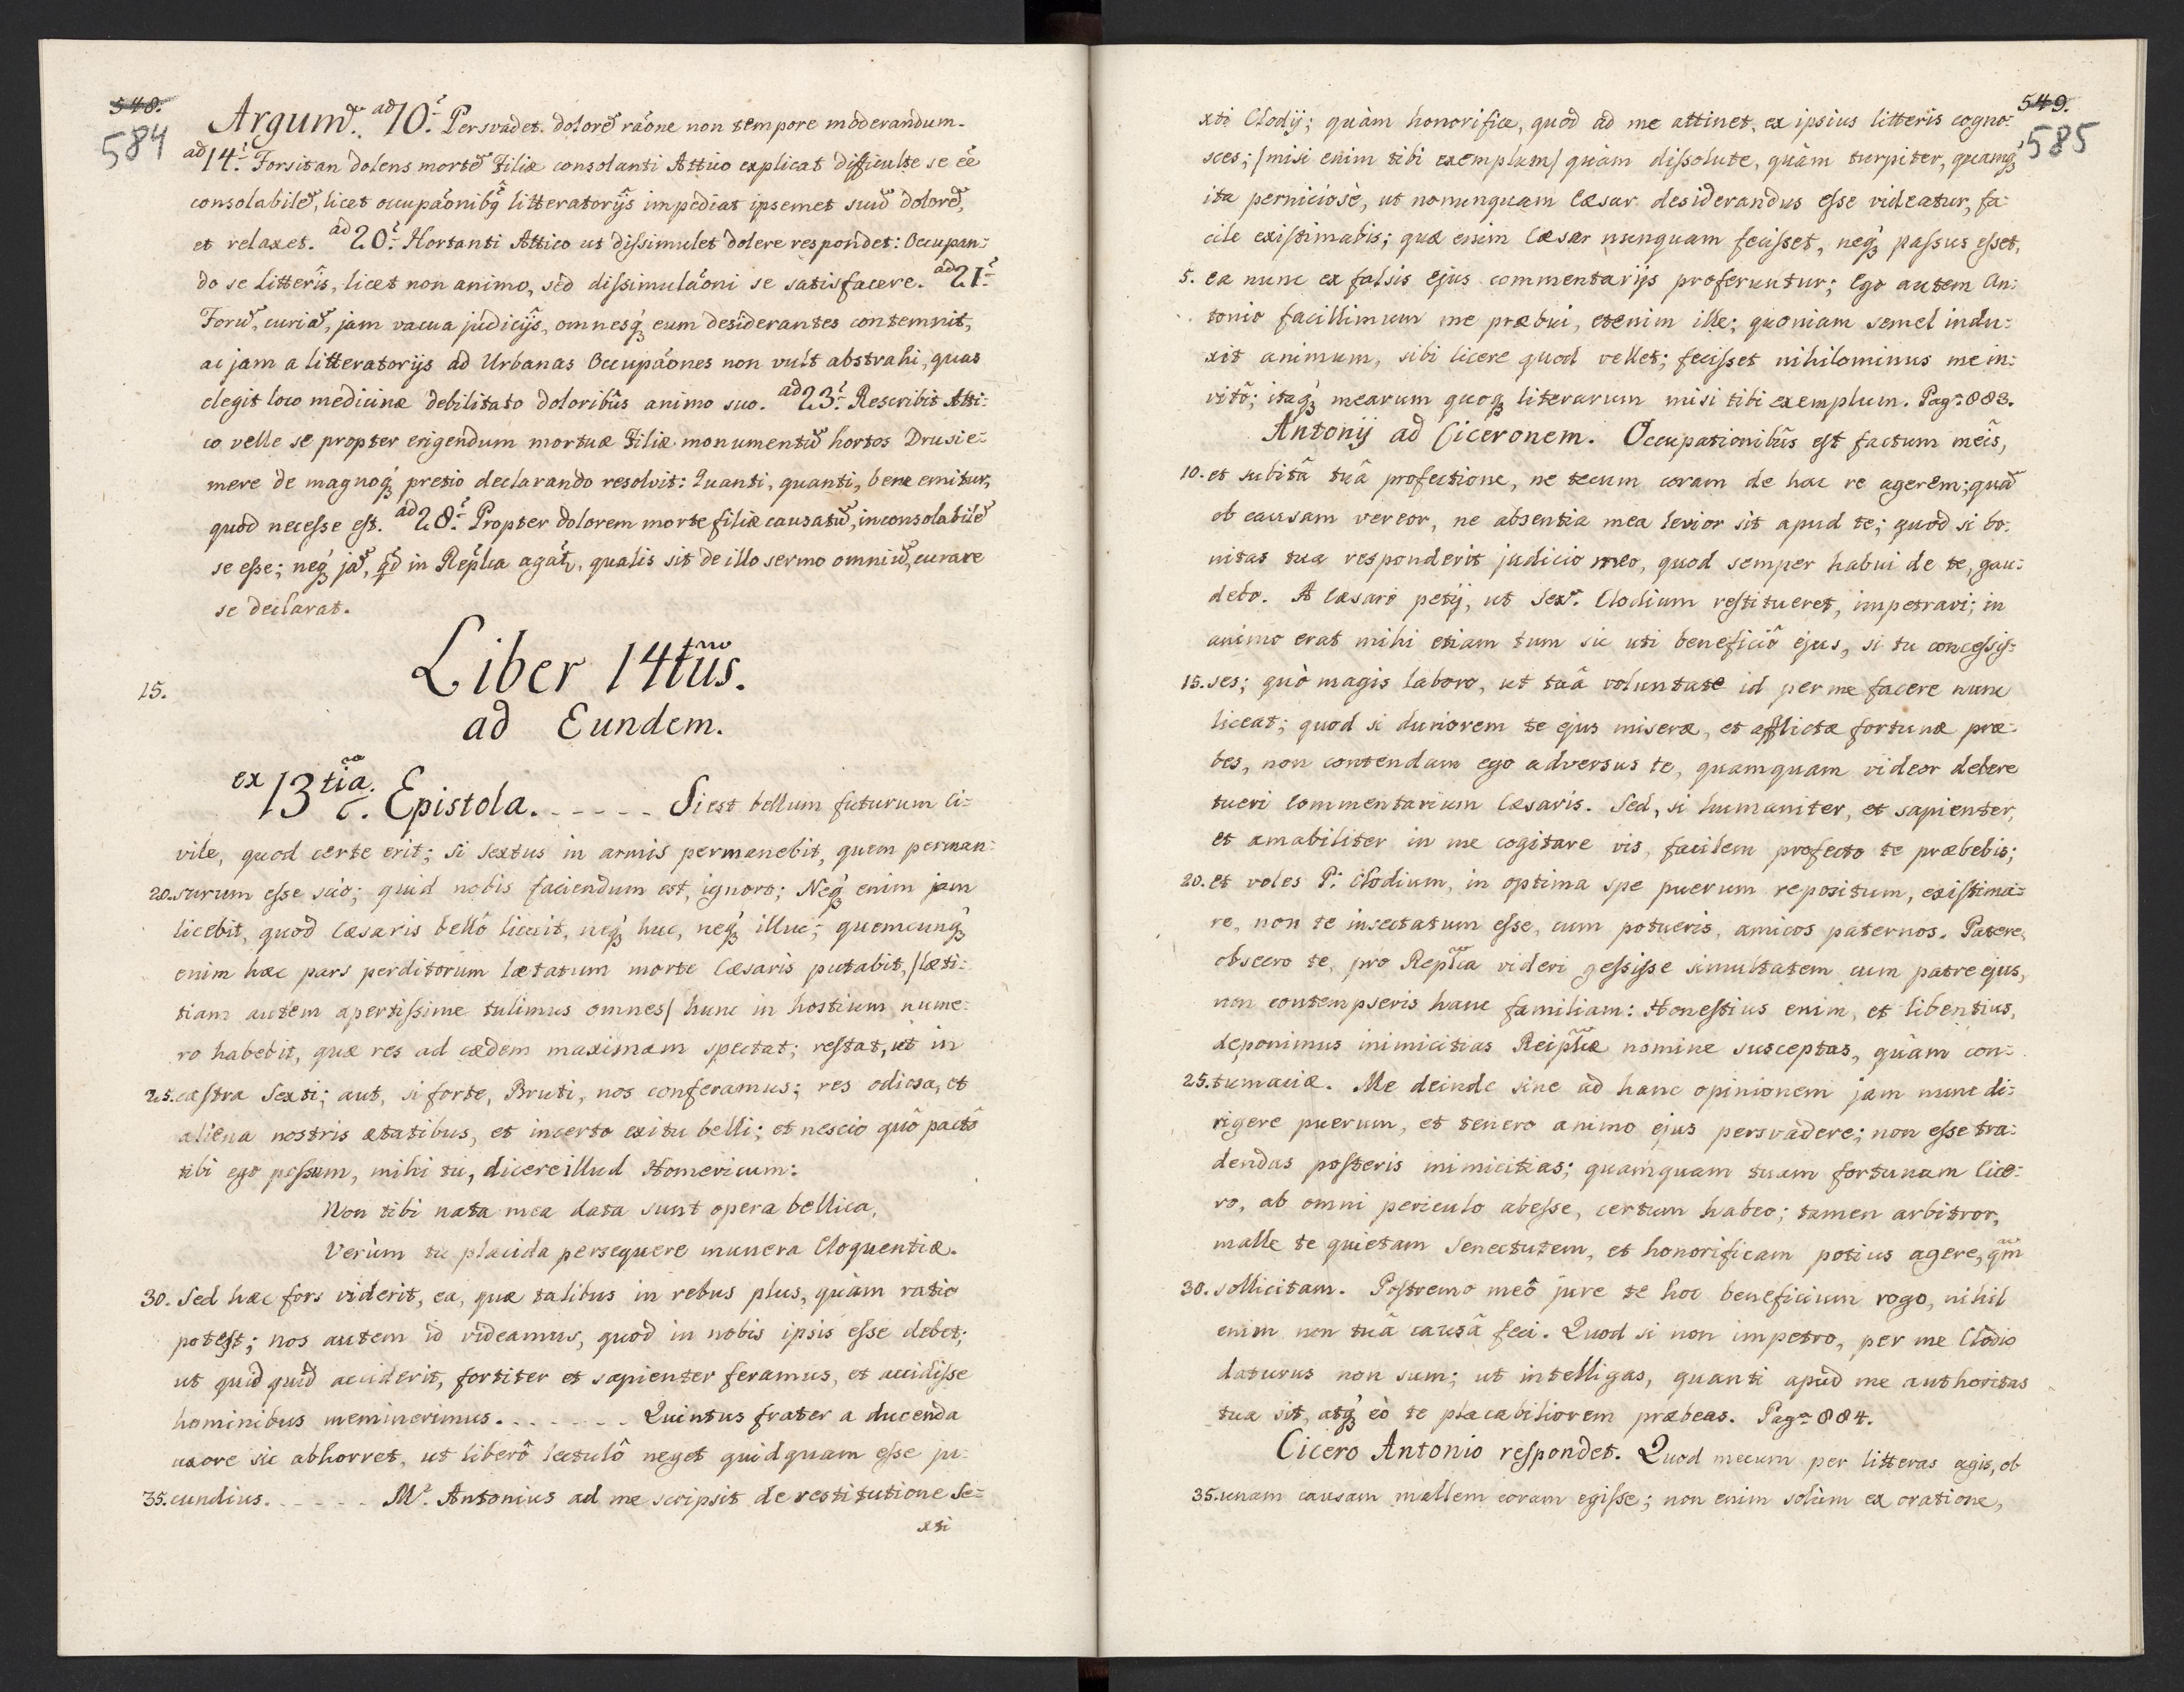 548.
584
Argumđ. ad 10. Persvadet. dolorẽ rãone non tempore moderandum.
ad 14. Forsitan dolens mortẽ Filiæ consolanti Attico explicat difficulte se ẽe
consolabilẽ, licet occupãonibq litteratorijs impediat ipsemet suũ dolorẽ,
et relaxet. ad 20. Hortanti Attico ut dissimulet dolere respondet: Occupan:
do se litteris, licet non animo, sed dissimulãoni se satisfacere. ad 21.
Forũ, curiã, jam vacua judicijs, omnesq́ eum desiderantes contemnit,
ac jam a litteratorijs ad Urbanas Occupãones non vult abstrahi, quas
elegit loco medicinæ debilitato doloribûs animo suo. ad 23. Rescribit Atti:
co velle se propter erigendum mortuæ Filiæ monumentũ hortos Drusi e:
mere de magnoq́ pretio declarando resolvit: Quanti, quanti, bene emitur,
quod necesse est. ad 28. Propter dolorem morte filiæ causatũ, inconsolabilẽ
se esse; neq́ jã, qd in Repl̃ca agat̃, qualis sit de illo sermo omniũ, curare
se declarat.
15.
Liber 14tũs.
ad Eundem.
ex 13tia. Epistola. - - - - - Si est bellum futurum ci:
vile, quod certe erit; si Sextus in armis permanebit, quem perman:
20. surum esse scio; quid nobis faciendum est, ignoro; Neq́ enim jam
licebit, quod Cæsaris bellô licuit, neq́ huc, neq́ illuc; quemcunq́
enim hæc pars perditorum lætatum morte Cæsaris putabit, /læti:
tiam autem apertissime tulimus omnes/ hunc in hostium nume:
ro habebit, quæ res ad cædem maximam spectat; restat, ut in
25. castra Sexti; aut, si forte, Bruti, nos conferamus; res odiosa, et
aliena nostris ætatibus, et incerto exitu belli; et nescio quô pactô
tibi ego possum, mihi tu, dicere illud Homericum:
Non tibi nata mea data sunt opera bellica,
Verùm tu placida persequere munera Eloquentiæ.
30. Sed hæc fors viderit, ea, quæ talibus in rebus plus, quàm ratio
potest; nos autem id videamus, quod in nobis ipsis esse debet;
ut quid quid acciderit, fortiter et sapienter feramus, et accidisse
hominibus meminerimus. - - - - - - Quintus frater a ducenda
uxore sic abhorret, ut liberô lectulô neget quidquam esse ju:
35. cundius. - - - - - M. Antonius ad me scripsit de restitutione Se:
xti
549.
585
xti Clodij; quàm honorifice, quod ad me attinet, ex ipsius litteris cogno:
sces; /misi enim tibi exemplum/ quàm dissolute, quàm turpiter, quamq́
ita perniciosè, ut nonunquam Cæsar desiderandus esse videatur, fa:
cile existimabis; quæ enim Cæsar nunquam fecisset, neq́ passus esset,
5. ea nunc ex falsis ejus commentarijs proferuntur; Ego autem An:
tonio facillimum me præbui, etenim ille; quoniam semel indu:
xit animum, sibi licere quod vellet; fecisset nihilominus me in:
vitô; itaq́ mearum quoq literarum misi tibi exemplum. Pag. 883.
Antonij ad Ciceronem. Occupationibûs est factum meîs,
10. et subitâ tuâ profectione, ne tecum coram de hac re agerem; quã
ob causam vereor, ne absentia mea levior sit apud te; quod si bo:
nitas tua responderit judicio meo, quod semper habui de te, gau:
debo. A Cæsare petij, ut Sex. Clodium restitueret, impetravi; in
animo erat mihi etiam tum sic uti beneficiô ejus, si tu concessis:
15. ses; quò magis laboro, ut tuâ voluntate id per me facere nunc
liceat; quod si duriorem te ejus miseræ, et afflictæ fortunæ præ:
bes, non contendam ego adversus te, quamquam videor debere
tueri Commentarium Cæsaris. Sed, si humaniter, et sapienter,
et amabiliter in me cogitare vis, facilem profecto te præbebis;
20. et voles P. Clodium, in optima spe puerum repositum, existima:
re, non te insectatum esse, cum potueris, amicos paternos. Patere,
obsecro te, pro Repl̃ca videri gessisse simultatem cum patre ejus,
non contempseris hanc familiam: Honestius enim, et libentius,
deponimus inimicitias Reipl̃cæ nomine susceptas, quàm con:
25. tumaciæ. Me deinde sine ad hanc opinionem jam nunc di:
rigere puerum, et tenero animo ejus persvadere; non esse tra:
dendas posteris inimicitias; quamquam tuam fortunam Cice:
ro, ab omni periculo abesse, certum habeo; tamen arbitror,
malle te quietam Senectutem, et honorificam potius agere, qm̃
30. sollicitam. Postremo meô jure te hoc beneficium rogo, nihil
enim non tuâ causâ feci. Quod si non impetro, per me Clodio
daturus non sum; ut intelligas, quanti apud me authoritas
tua sit, atq́ eò te placabiliorem præbeas. Pag. 884.
Cicero Antonio respondet. Quod mecum per litteras agis, ob
35. unam causam mallem coram egisse; non enim solùm ex oratione,